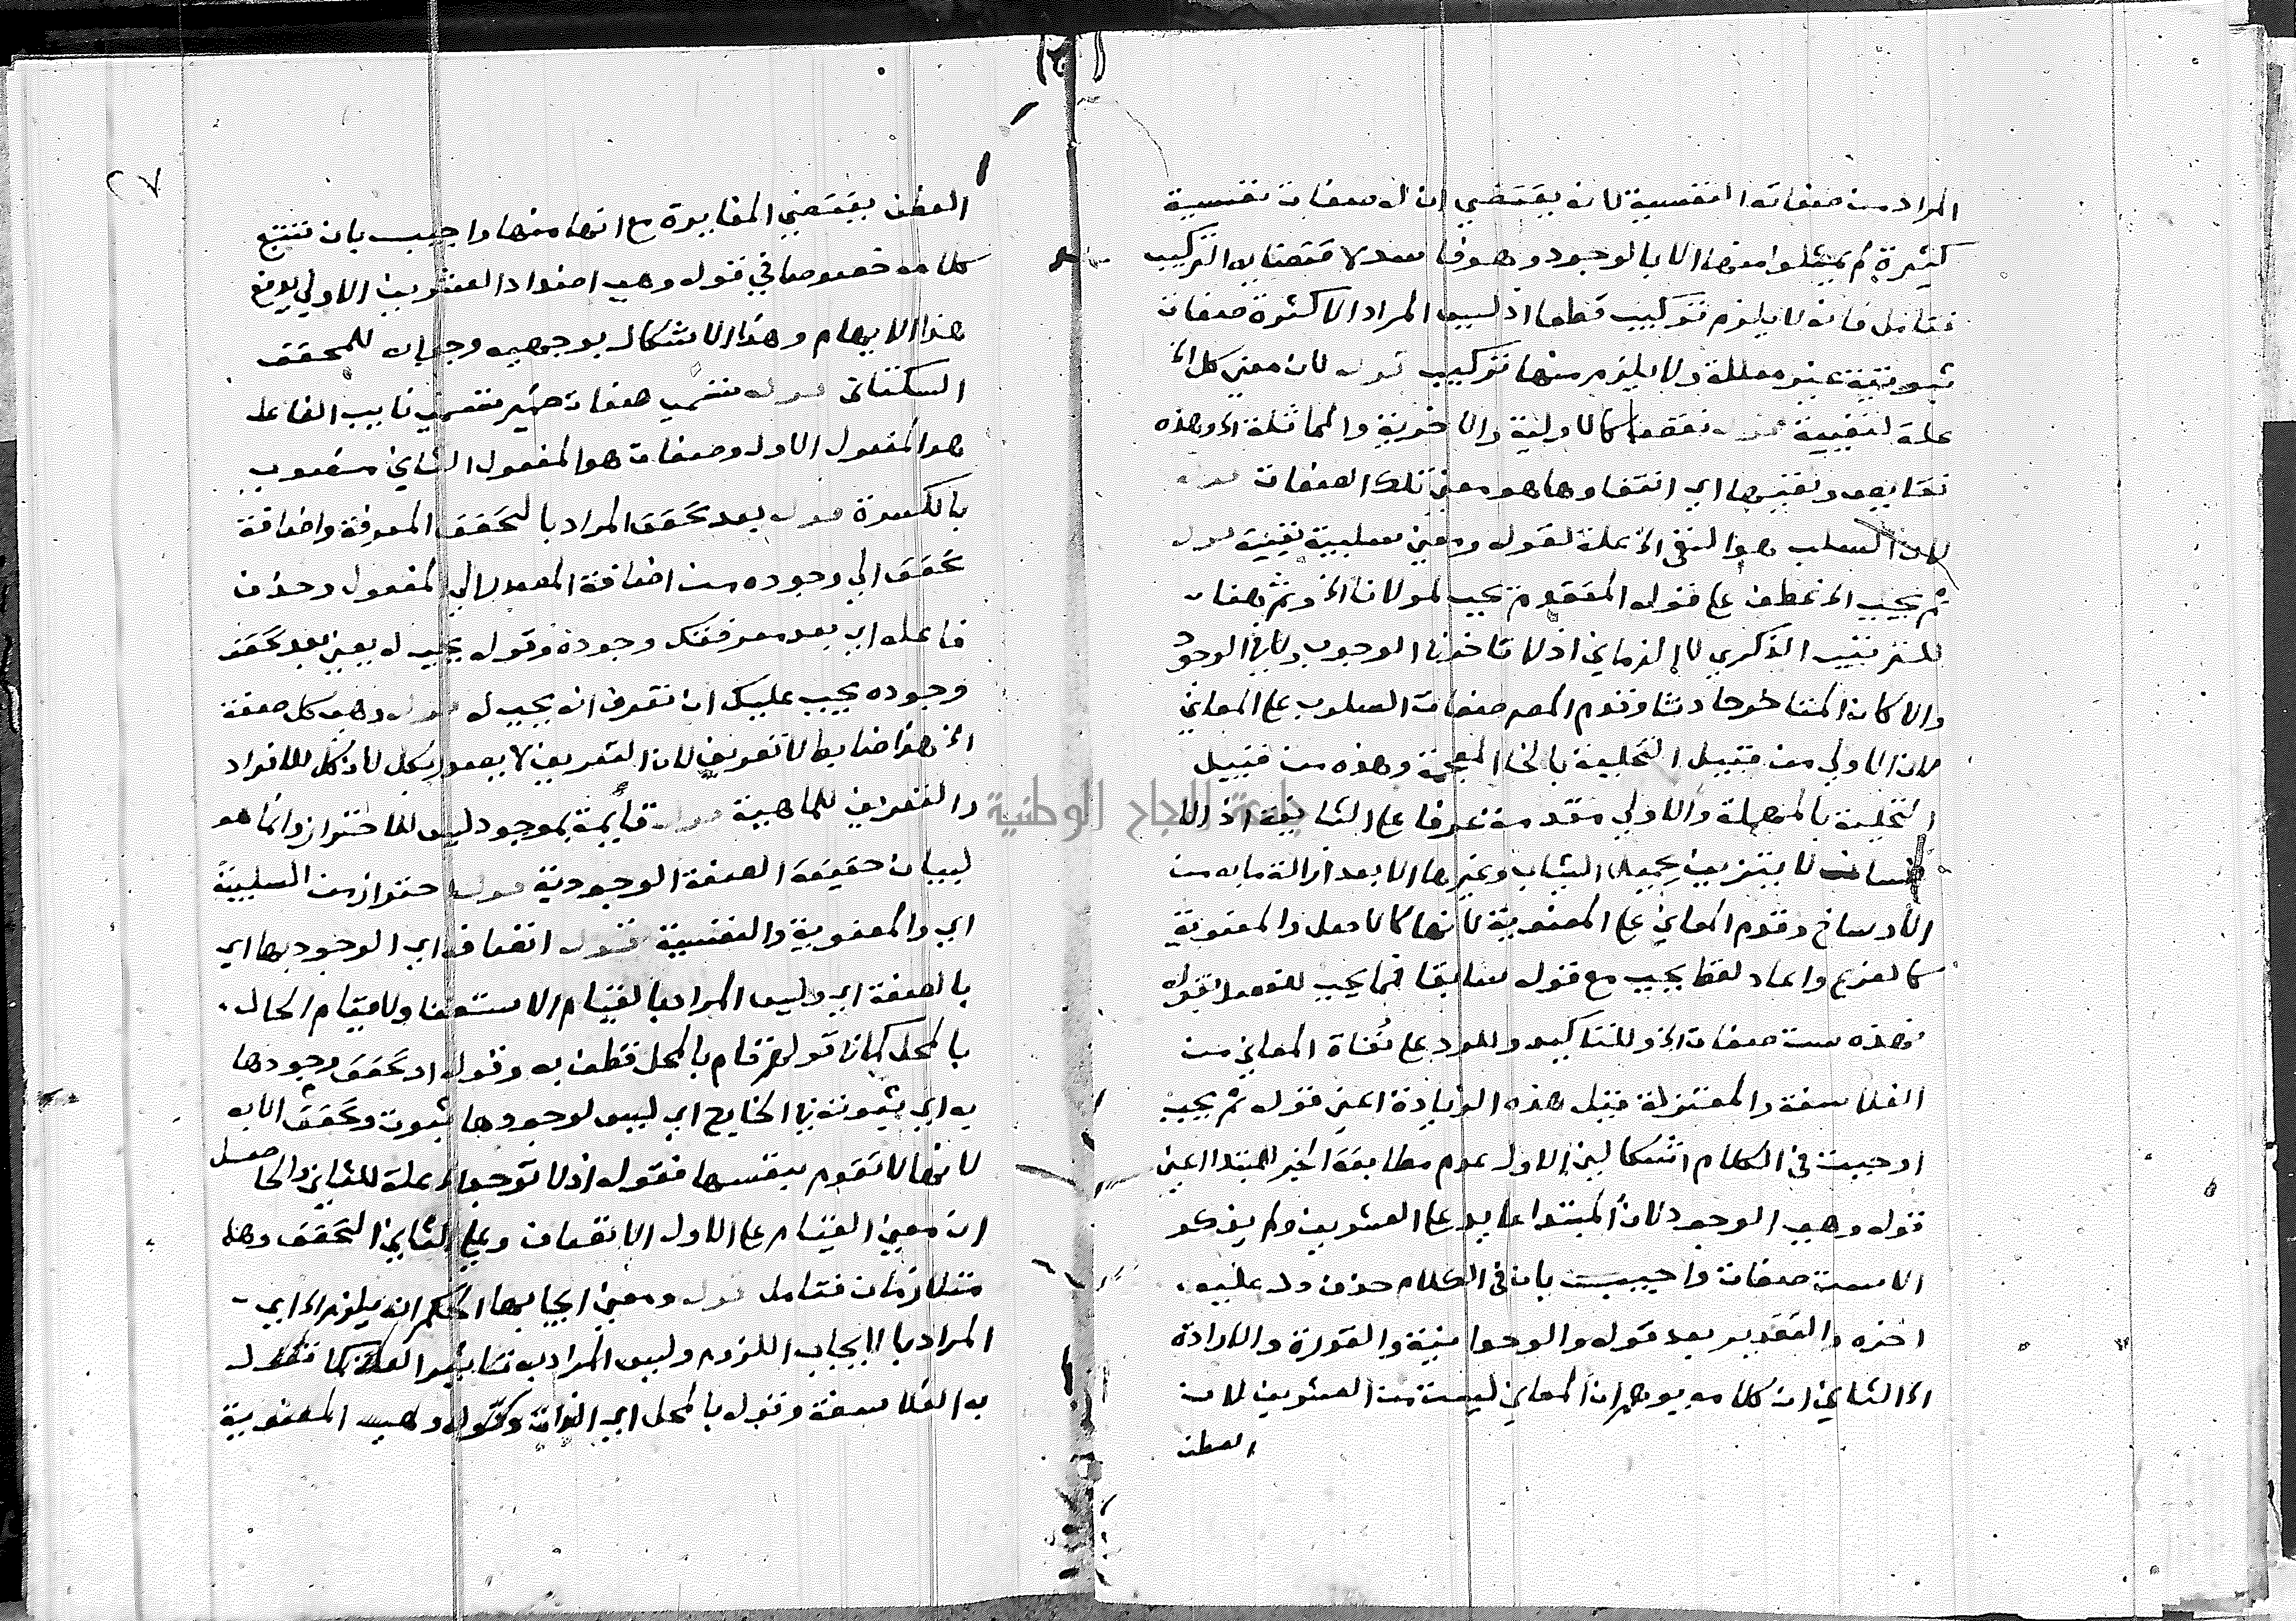 المراد من صفاته النفسية لانه يقتضي ان له صفات نفسية
كثيرة لم يمثلوا منها الا بالوجود وهو فاسد لاقتضايه التركيب
فتامل فانه لا يلزم تركيب قطعا اذ ليس المراد الا كثرة صفات
ثبوتية غير معللة ولا يلزم منها تركيب قوله لان معني كل الخ
علة لنفيية قوله نقصا كالاولية والاخرية والمماثلة الخ وهذه
نقايص ونفيها اي انتفاوها هو معني تلك الصفات قوله
لان السلب هو النفي الخ علة لقوله ومعني سلبية نفيية قوله
ثم يجب الخ عطف علي قوله المتقدم يجب لمولانا الخ وثم هنا
للترتيب الذكري لا الزماني اذ لا تاخر في الوجوب ولا في الوجود
والا كان المتاخر حادثا وقدم المص صفات السلوب علي المعاني
لان الاولي من قبيل التخلية بالخا المعجمة وهذه من قبيل
التحلية بالمهملة والاولي مقدمة عرفا علي الثانية اذ الا
نسان لا يتزين بجميل الثياب وغيرها الا بعد ازالة ما به من
الاوساخ وقدم المعاني علي المعنوية لانها كالاصل والمعنوية
كالفرع واعاد لفظ يجب مع قوله سابقا فما يجب لفصله بقوله
فهذه ست صفات الخ وللتاكيد وللرد علي نفاة المعاني من
الفلاسفة والمعتزلة قبل هذه الزيادة اعني قوله ثم يجب
اوجبت في الكلام اشكالين الاول عدم مطابقة الخبر للمبتدا اعني
قوله وهي الوجود لان المبتدا عايد علي العشرين ولم يذكر
الا ست صفات واجيب بان في الكلام حذف دل عليه
اخره والتقدير بعد قوله والوحدانية والقدرة والارادة
الخ الثاني ان كلامه يوهم ان المعاني ليست من العشرين لان
العطف
٢٧
العطف يقتضي المغايرة مع انها منها واجيب بان تتبع
كلامه خصوصا في قوله وهي اضداد العشرين الاولي يدفع
هذا الايهام وهذا الاشكال بوجهيه وجوابه للمحقق
السكتاني قوله تسمي صفات ضمير تسمي نايب الفاعل
هو المفعول الاول وصفات هو المفعول الثاني منصوب
بالكسرة قوله بعد تحقق المراد بالتحقق المعرفة واضافة
تحقق الي وجوده من اضافة المصدر الي المفعول وحذف
فاعله اي بعد معرفتك وجوده وقوله يجب له يعني بعد تحقق
وجوده يجب عليك ان تعرف انه يجب له قوله وهي كل صفة
الخ هذا ضابط لا تعريف لان التعريف لا يصدر بكل لان كل للافراد
والتعريف للماهية قوله قايمة بموجود ليس للاحتراز وانما هو
لبيان حقيقة الصفة الوجودية قوله احتراز من السلبية
اي والمعنوية والنفسية قوله اتصاف اي الوجود بها اي
بالصفة اي وليس المراد بالقيام الاستغنا ولا قيام الحال
بالمحل كما في قولهم قام بالمحل فقط به وقوله او تحقق وجودها
به اي ثبوته في الخارج اي ليس لوجودها ثبوت وتحقق الا به
لانها لا تقوم بنفسها فقوله اذ لا توجد الخ علة للثاني والحاصل
ان معني القيام علي الاول الاتصاف وعلي الثاني التحقق وهما
متلازمان فتامل قوله ومعني ايجابها الحكم انه يلزم الخ اي
المراد بالايجاب اللزوم وليس المراد به تاثير العلة كما تقول
به الفلاسفة وقوله بالمحل اي الذات وقوله وهي المعنوية
جامعة النجاح الوطنية